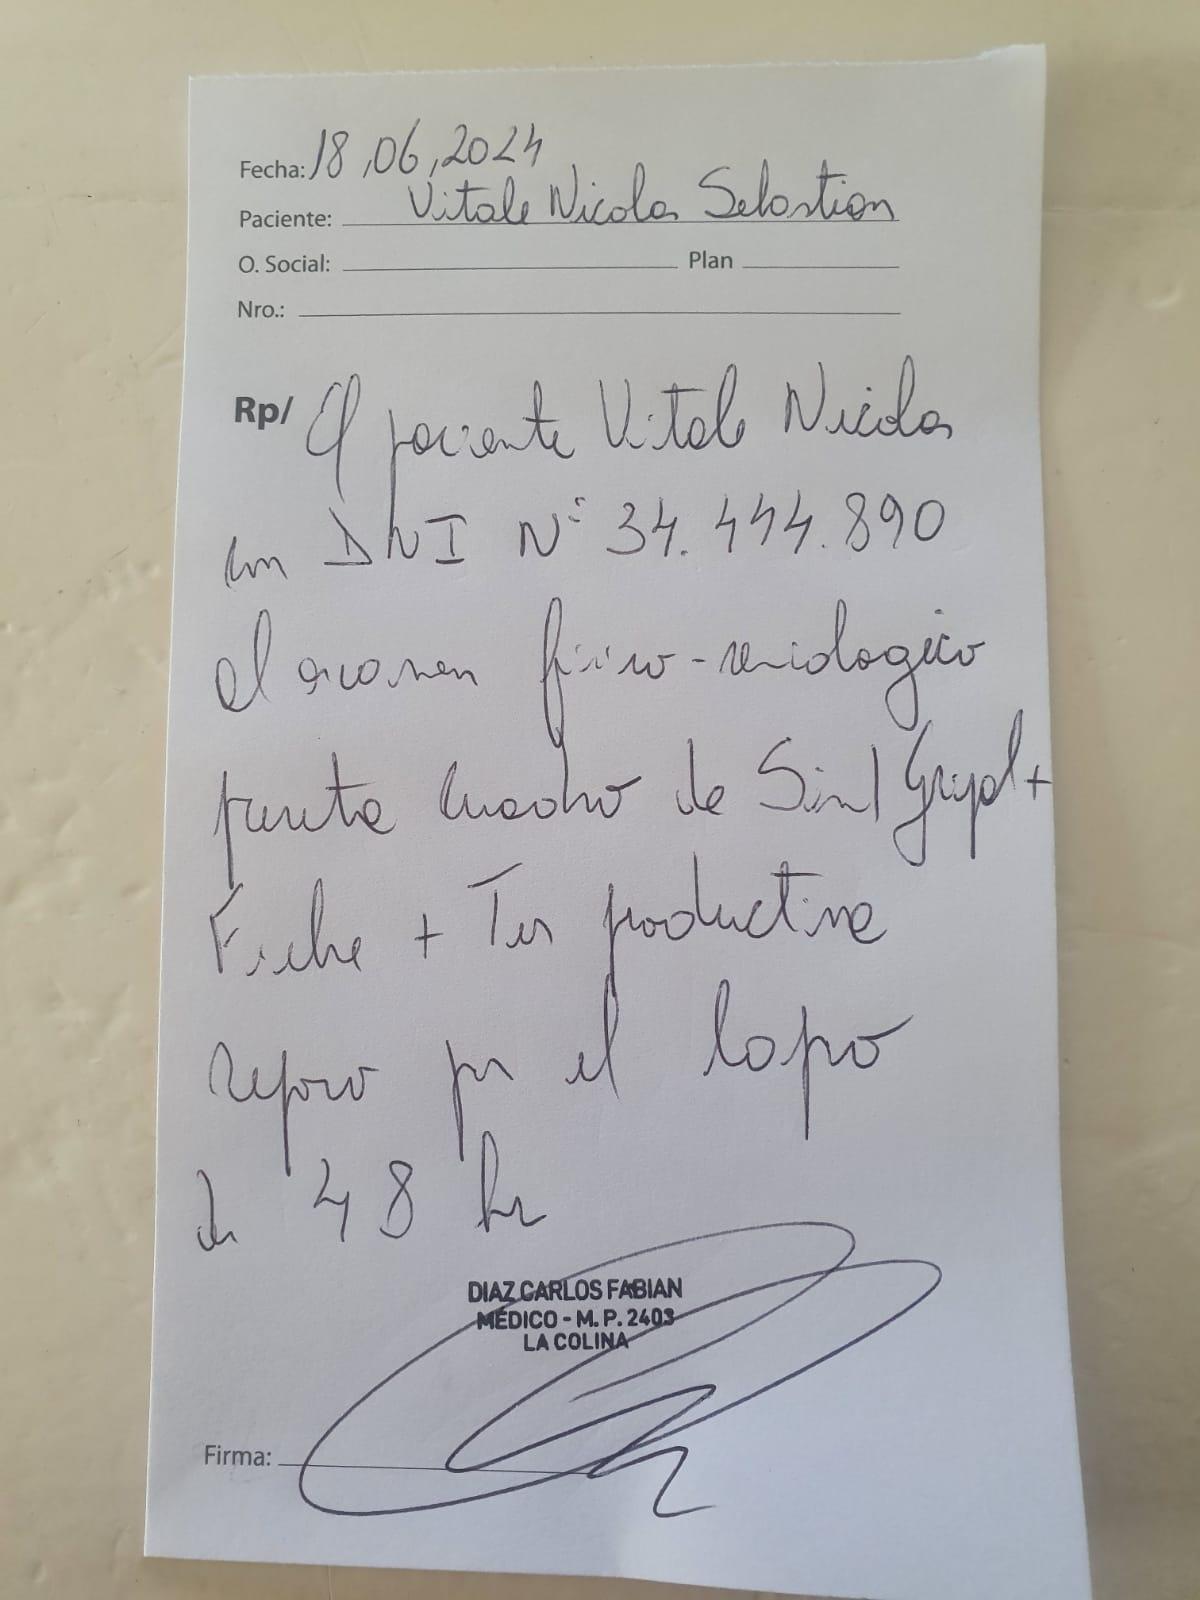 Fecha: 18,06,2024
Paciente: Vitale Nicolas Sebastian
O. Social: Plan
Nro.:
Rp/ El paciente Vitale Nicolas
con DNI N° 34.444.890
al examen fisico-semiologico
cuadro de Gripal +
Fiebre + Tos productiva
reposo por el lapso
de 48 hs
DIAZ CARLOS FABIAN
MÉDICO - M. P. 2403
LA COLINA
Firma: